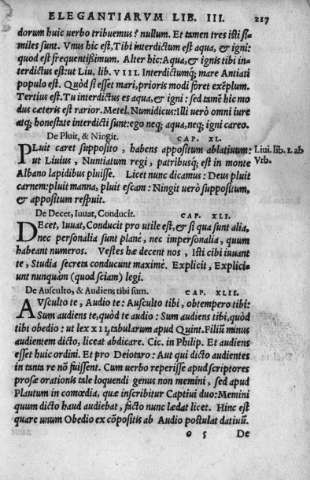 ELEGANTIARVM LIB. III. 217
dorum huic uerbo tribuemus? nullum. Et tamen tres isti si=
miles sunt. Vnus hic est, Tibi interdictum est aqua, & igni:
quod est frequentißimum. Alter hic: Aqua, & ignis tibi in=
terdictus est: ut Liu. lib. VIII. Interdictumq; mare Antiati
populo est. Quòd si esset mari, prioris modi foret exẽplum.
Tertius est. Tu interdictus es aqua, & igni: sed tamẽ hic mo
dus cæteris est rarior. Metel. Numidicus: Illi uerò omni iure
atq; honestate interdicti sunt: ego neq; aqua, neq; igni careo.
De Pluit, & Ningit. CAP. XL.
PLuit caret supposito, habens appositum ablatiuum:
ut Liuius, Nuntiatum regi, patribusq; est in monte
Albano lapidibus pluisse. Licet nunc dicamus: Deus pluit
carnem: pluit manna, pluit escam: Ningit uerò suppositum,
& appositum respuit.
Liui. lib. 1. ab
Vrb.
De Decet, Iuuat, Conducit. CAP. XLI.
DEcet, Iuuat, Conducit pro utile est, & si qua sunt alia,
nec personalia sunt planè, nec impersonalia, quum
habeant numeros. Vestes hæ decent nos, Isti cibi iuuant
te, Studia secreti conducunt maximè. Explicit, Explici=
unt nunquàm (quod sciam) legi.
De Ausculto, & Audiens tibi sum. CAP. XLII.
AVsculto te, Audio te: Ausculto tibi, obtempero tibi:
Sum audiens te, quòd te audio: Sum audiens tibi, quòd
tibi obedio: ut lex XII. tabularum apud Quint. Filiũ minus
audientem dicto, liceat abdicare. Cic. in Philip. Et audiens
esset huic ordini. Et pro Deiotaro: Aut qui dicto audientes
in tanta re nõ fuissent. Cum uerbo reperisse apud scriptores
prosæ orationis tale loquendi genus non memini, sed apud
Plautum in comœdia, quæ inscribitur Captiui duo: Memini
quum dicto haud audiebat, facto nunc lædat licet. Hinc est
quare unum Obedio ex cõpositis ab Audio postulat datiuũ.
o 5 De